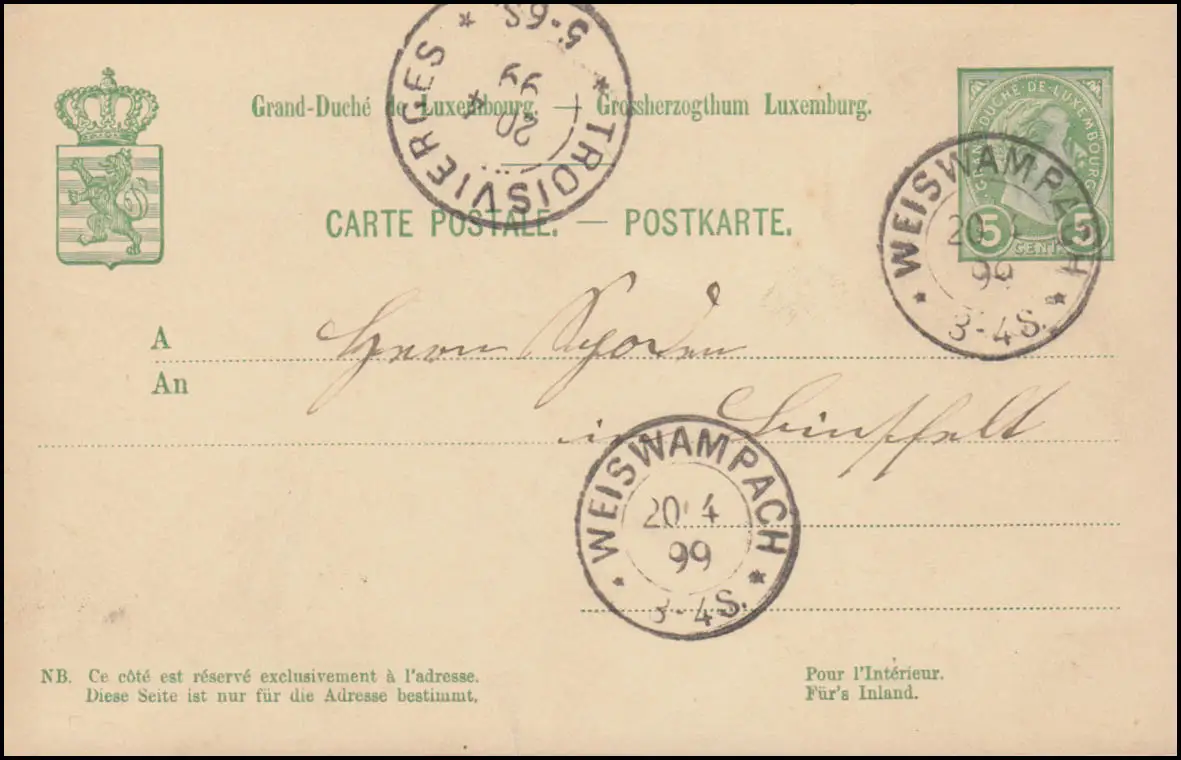 Grand-Duché de Luxembourg. — Grossherzogthum Luxemburg.
GRAND DUCHÉ-DE-LUXEMBOURG
5 CENT. 5
TROISVIERGES
20 4
99
5-6S
WEISWAMPACH
20 4
99
3-4S.
CARTE POSTALE. — POSTKARTE.
A
An
Herrn
in
WEISWAMPACH
20 4
99
3-4S.
NB. Ce côté est réservé exclusivement à l'adresse.
Diese Seite ist nur für die Adresse bestimmt.
Pour l'Intérieur.
Für's Inland.